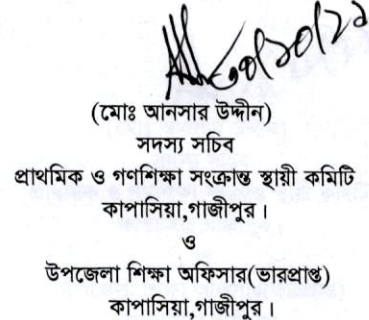 ৩০/১০/২২
(মোঃ আনসার উদ্দীন)
সদস্য সচিব
প্রাথমিক ও গণশিক্ষা সংক্রান্ত স্থায়ী কমিটি
কাপাসিয়া,গাজীপুর ।
ও
উপজেলা শিক্ষা অফিসার(ভারপ্রাপ্ত)
কাপাসিয়া,গাজীপুর ।